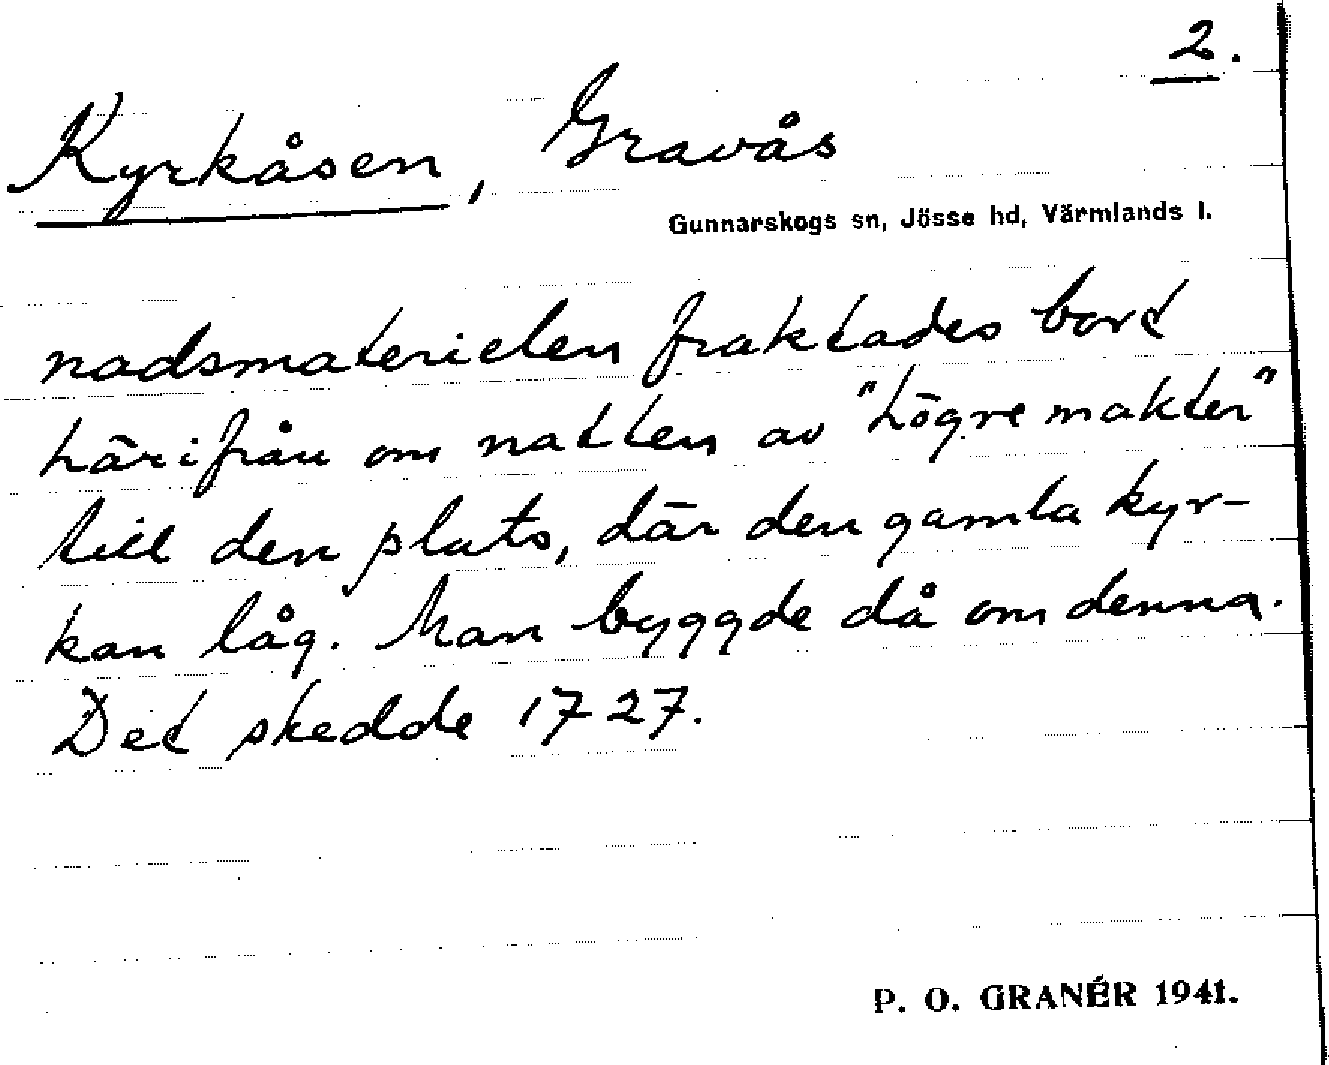 2.
Kyrkåsen, Gravås
Gunnarskogs sn, Jösse hd, Värmlands l.
nadsmaterielen fraktades bort
härifrån om natten av "högre makter"
till den plats, där den gamla kyr-
kan låg. Man byggde då om denna.
Det skedde 1727.
P. O. GRANÉR 1941.